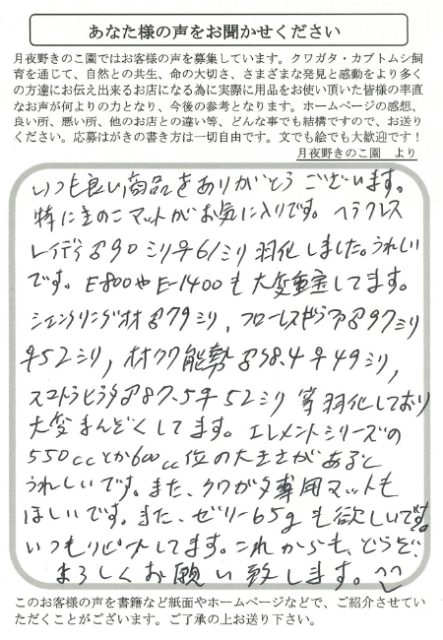 あなた様の声をお聞かせください
月夜野きのこ園ではお客様の声を募集しています。クワガタ・カブトムシ飼
育を通じて、自然との共生、命の大切さ、さまざまな発見と感動をより多く
の方達にお伝え出来るお店になる為に実際に用品をお使い頂いた皆様の率直
なお声が何よりの力となり、今後の参考となります。ホームページの感想、
良い所、悪い所、他のお店との違い等、どんな事でも結構ですので、お送り
ください。応募はがきの書き方は一切自由です。文でも絵でも大歓迎です！
月夜野きのこ園　より
いつも良い商品をありがとうございます。
特にきのこマットがお気に入りです。ヘラクレス
レイディ♂90ミリ♀61ミリ羽化しました。うれしい
です。E-800やE-1400も大変重宝してます。
シェンクリング オオ♂79ミリ、フローレスギラファ♂97ミリ
♀52ミリ，オオクワ能勢♂78.4♀49ミリ，
スマトラヒラタ♂87.5♀52ミリ等羽化しており
大変まんぞくしてます。エレメントシリーズの
550ccとか600cc位の大きさがあると
うれしいです。また、クワガタ専用マットも
ほしいです。また、ゼリー65gも欲しいです。
いつもリピートしてます。これからも、どうぞ、
よろしくお願い致します。^^
このお客様の声を書籍など紙面やホームページなどで、ご紹介させてい
ただくことがございます。ご了承の上お送り下さい。